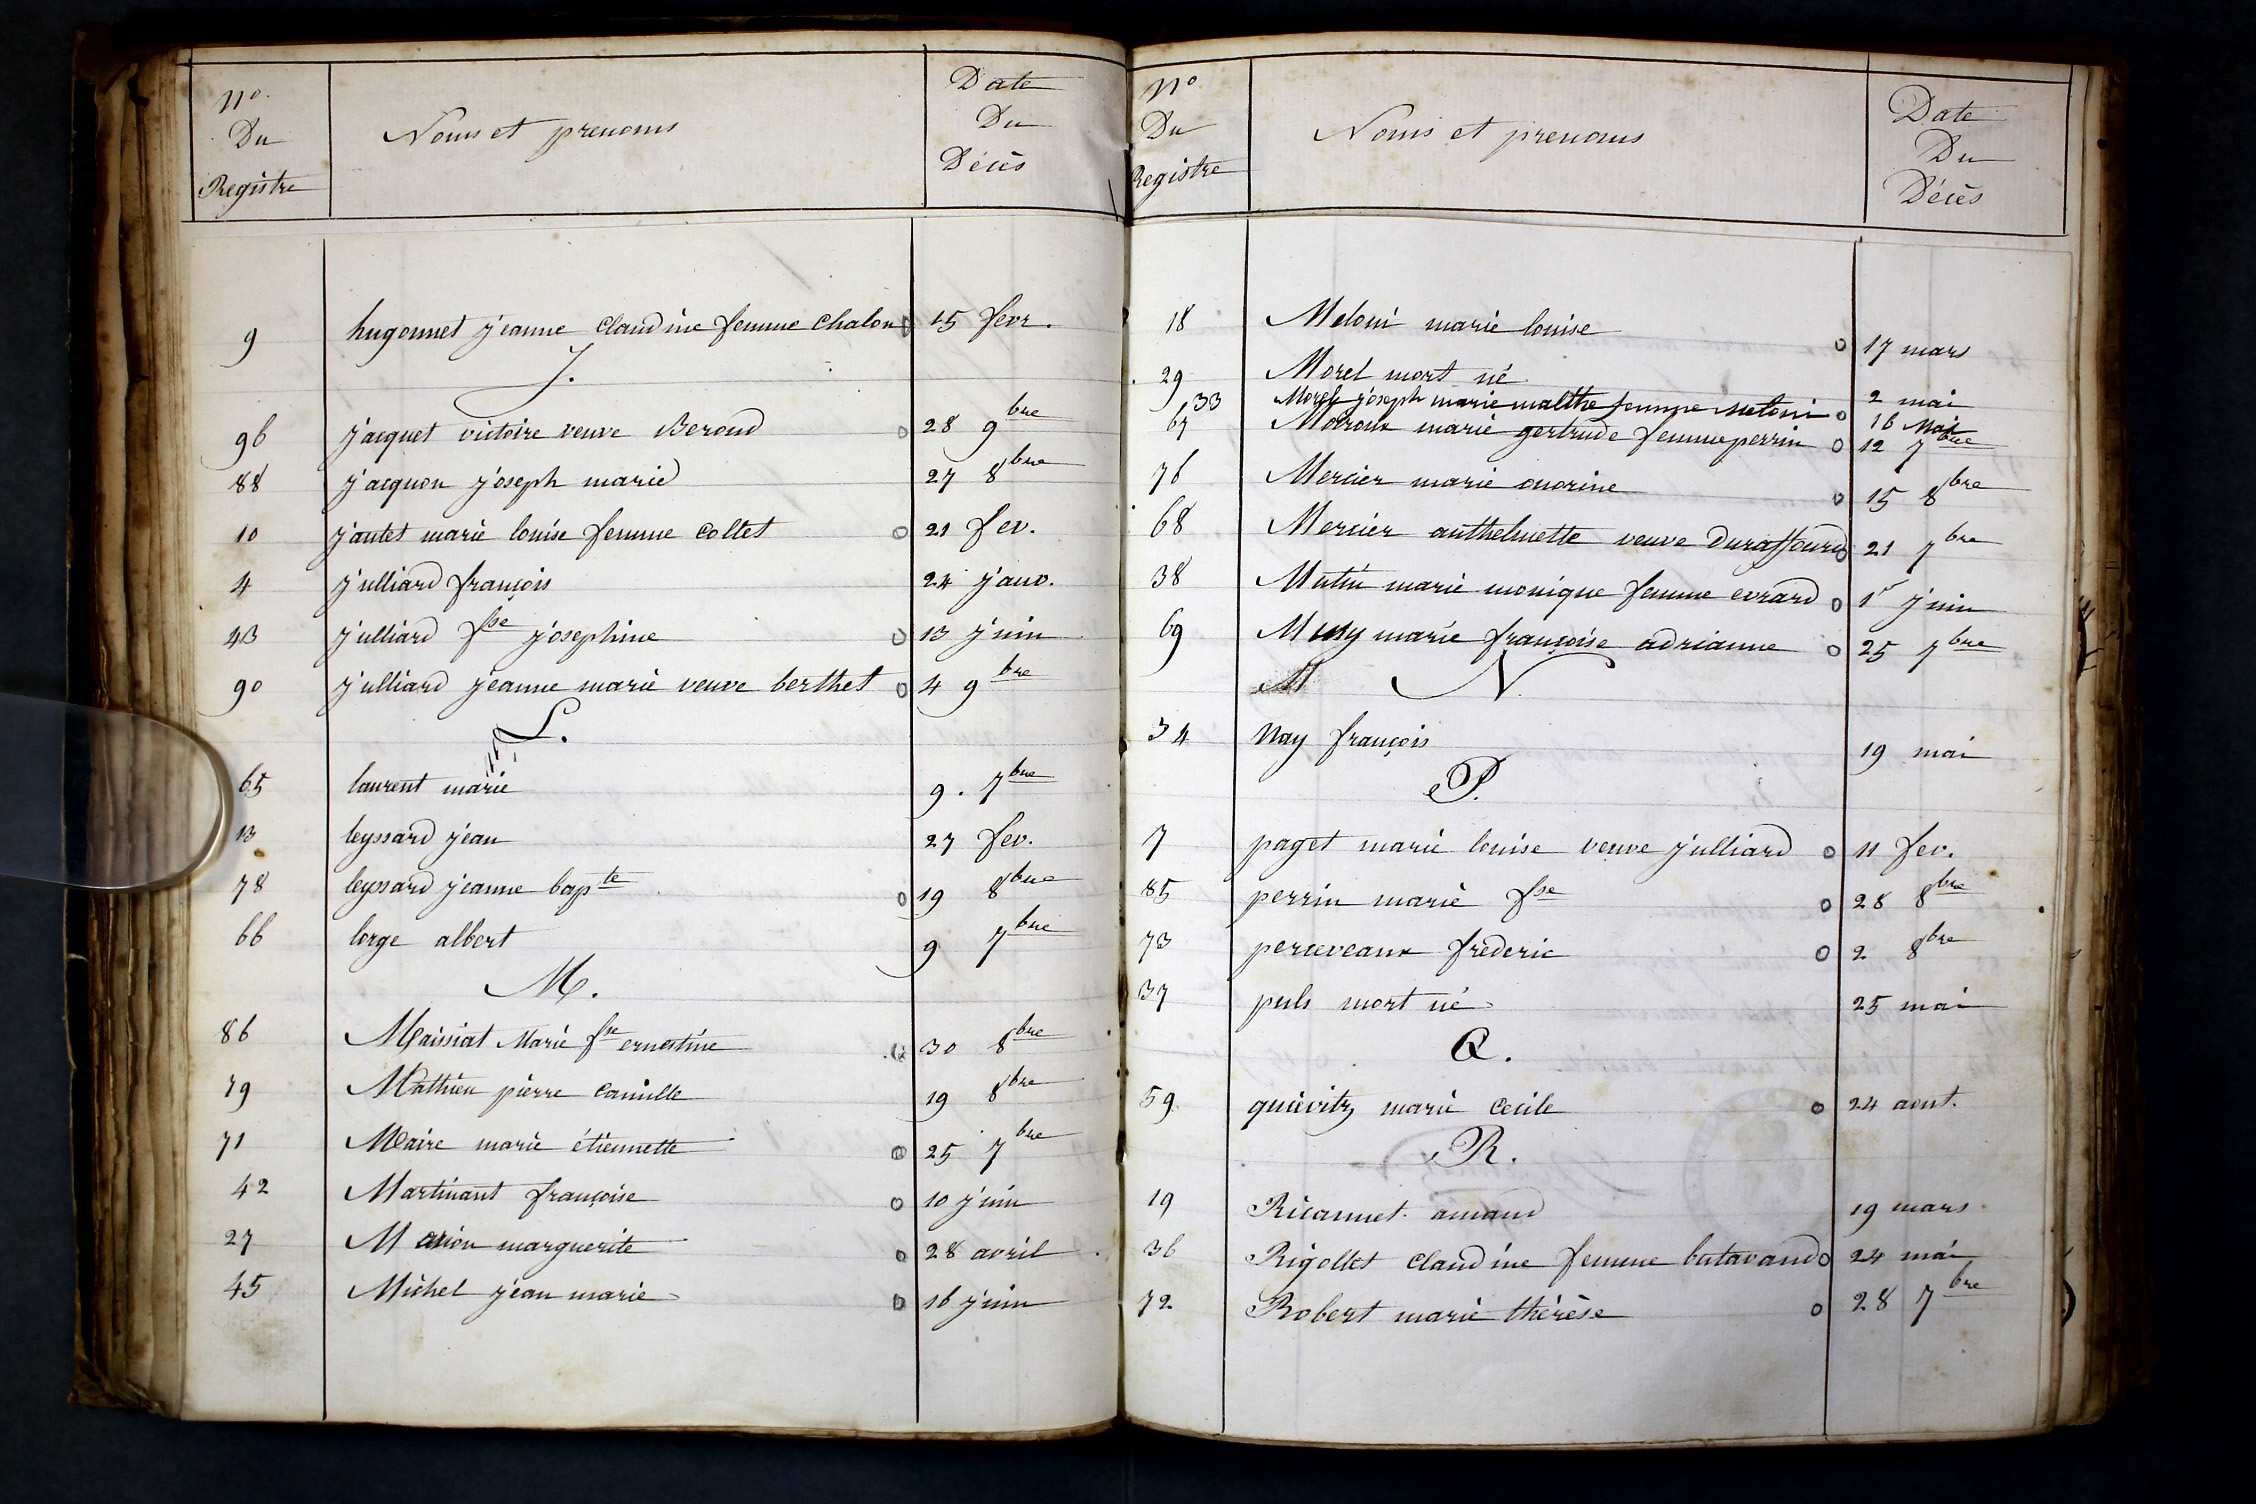 No Du Registre
Noms et prenoms
Date Du Décès
9 hugonnet jeanne claudine femme chalon 15 fevr.
J.
96 jacquet victoire veuve Beroud 28 9bre
88 jacquon joseph marie 27 8bre
10 jantet marie louise femme collet 21 fev.
4 julliard françois 24 janv.
43 julliard fse josephine 13 juin
90 julliard jeanne marie veuve berthet 4 9bre
L.
65 laurent marie 9. 7bre
13 leyssard jean 27 fev.
78 leyssard jeanne bapte 19 8bre
66 lorge albert 9 7bre
M.
86 Maissiat Marie fse ernestine 30 8bre
79 Mathieu pierre camille 19 8bre
71 Maire marie étiennette 25 7bre
42 Martinant françoise 10 juin
27 Marion marguerite 28 avril
45 Michel jean marie 16 juin
No Du Registre
Noms et prenoms
Date Du Décès
18 Meloni marie louise 17 mars
29 Morel mort né 2 mai
33 Morel joseph marie malthe femme meloni 16 Mai
67 marie gertrude femme perrin 12 7bre
76 Mercier marie onorine 15 8bre
68 Mercier anthelmette veuve duraffourd 21 7bre
38 Mutin marie monique femme evrard 1r juin
69 Musy marie françoise adrianne 25 7bre
M N
34 Nay françois 19 mai
P.
7 paget marie louise veuve julliard 11 fev.
85 perrin marie fse 28 8bre
73 perceveaux frederic 2 8bre
37 puls mort né 25 mai
Q.
59. quievitz marie cecile 24 aout.
R.
19 Ricannet. amand 19 mars
36 Rigollet claudine femme butavand 24 mai
72 Robert marie thérèse 28 7bre